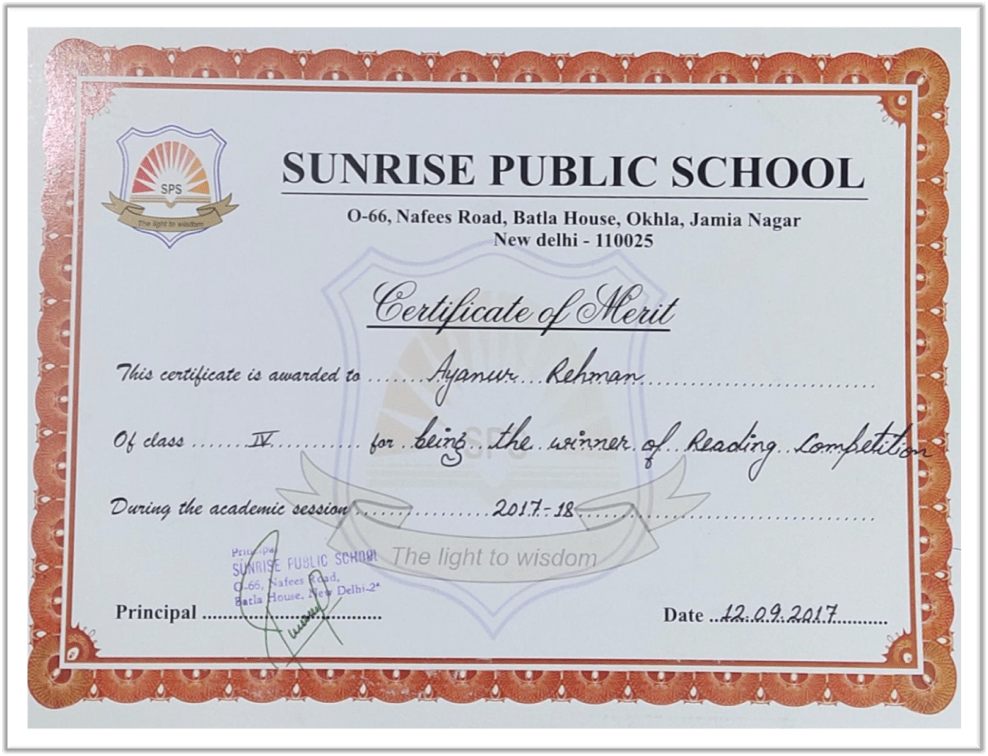 SPS
The light to wisdom
SUNRISE PUBLIC SCHOOL
O-66, Nafees Road, Batla House, Okhla, Jamia Nagar
New delhi - 110025
Certificate of Merit
This certificate is awarded to ...... Ayanur Rehman ......
Of class ...... IV ...... for being the winner of Reading Competition
During the academic session ...... 2017-18 ......
SPS
The light to wisdom
Principal
SUNRISE PUBLIC SCHOOL
O-66, Nafees Road,
Batla House, New Delhi-2
Principal ......
Date ...12.09.2017......